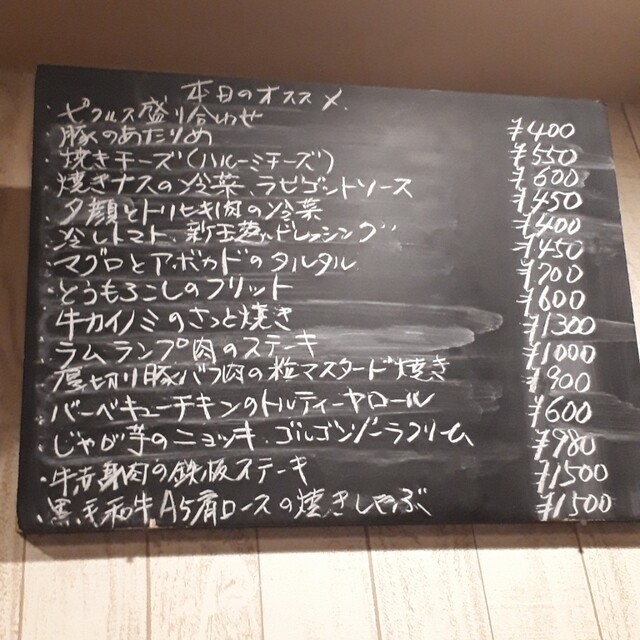 本日のオススメ
・ピクルス盛り合わせ ¥400
・豚のあたりめ ¥550
・焼きチーズ(ハルーミチーズ) ¥600
・焼きナスの冷菜 ラビゴットソース ¥450
・夕顔とトリセキ肉の冷菜 ¥400
・冷しトマト 新玉葱ドレッシング ¥450
・マグロとアボカドのタルタル ¥700
・とうもろこしのフリット ¥600
・牛カイノミのさっと焼き ¥1300
・ラムランプ肉のステーキ ¥1000
・厚切り豚バラ肉の粒マスタード焼き ¥900
・バーベキューチキンのトルティーヤロール ¥600
・じゃが芋のニョッキ ゴルゴンゾーラクリーム ¥980
・牛赤身肉の鉄板ステーキ ¥1500
・黒毛和牛A5肩ロースの焼きしゃぶ ¥1500